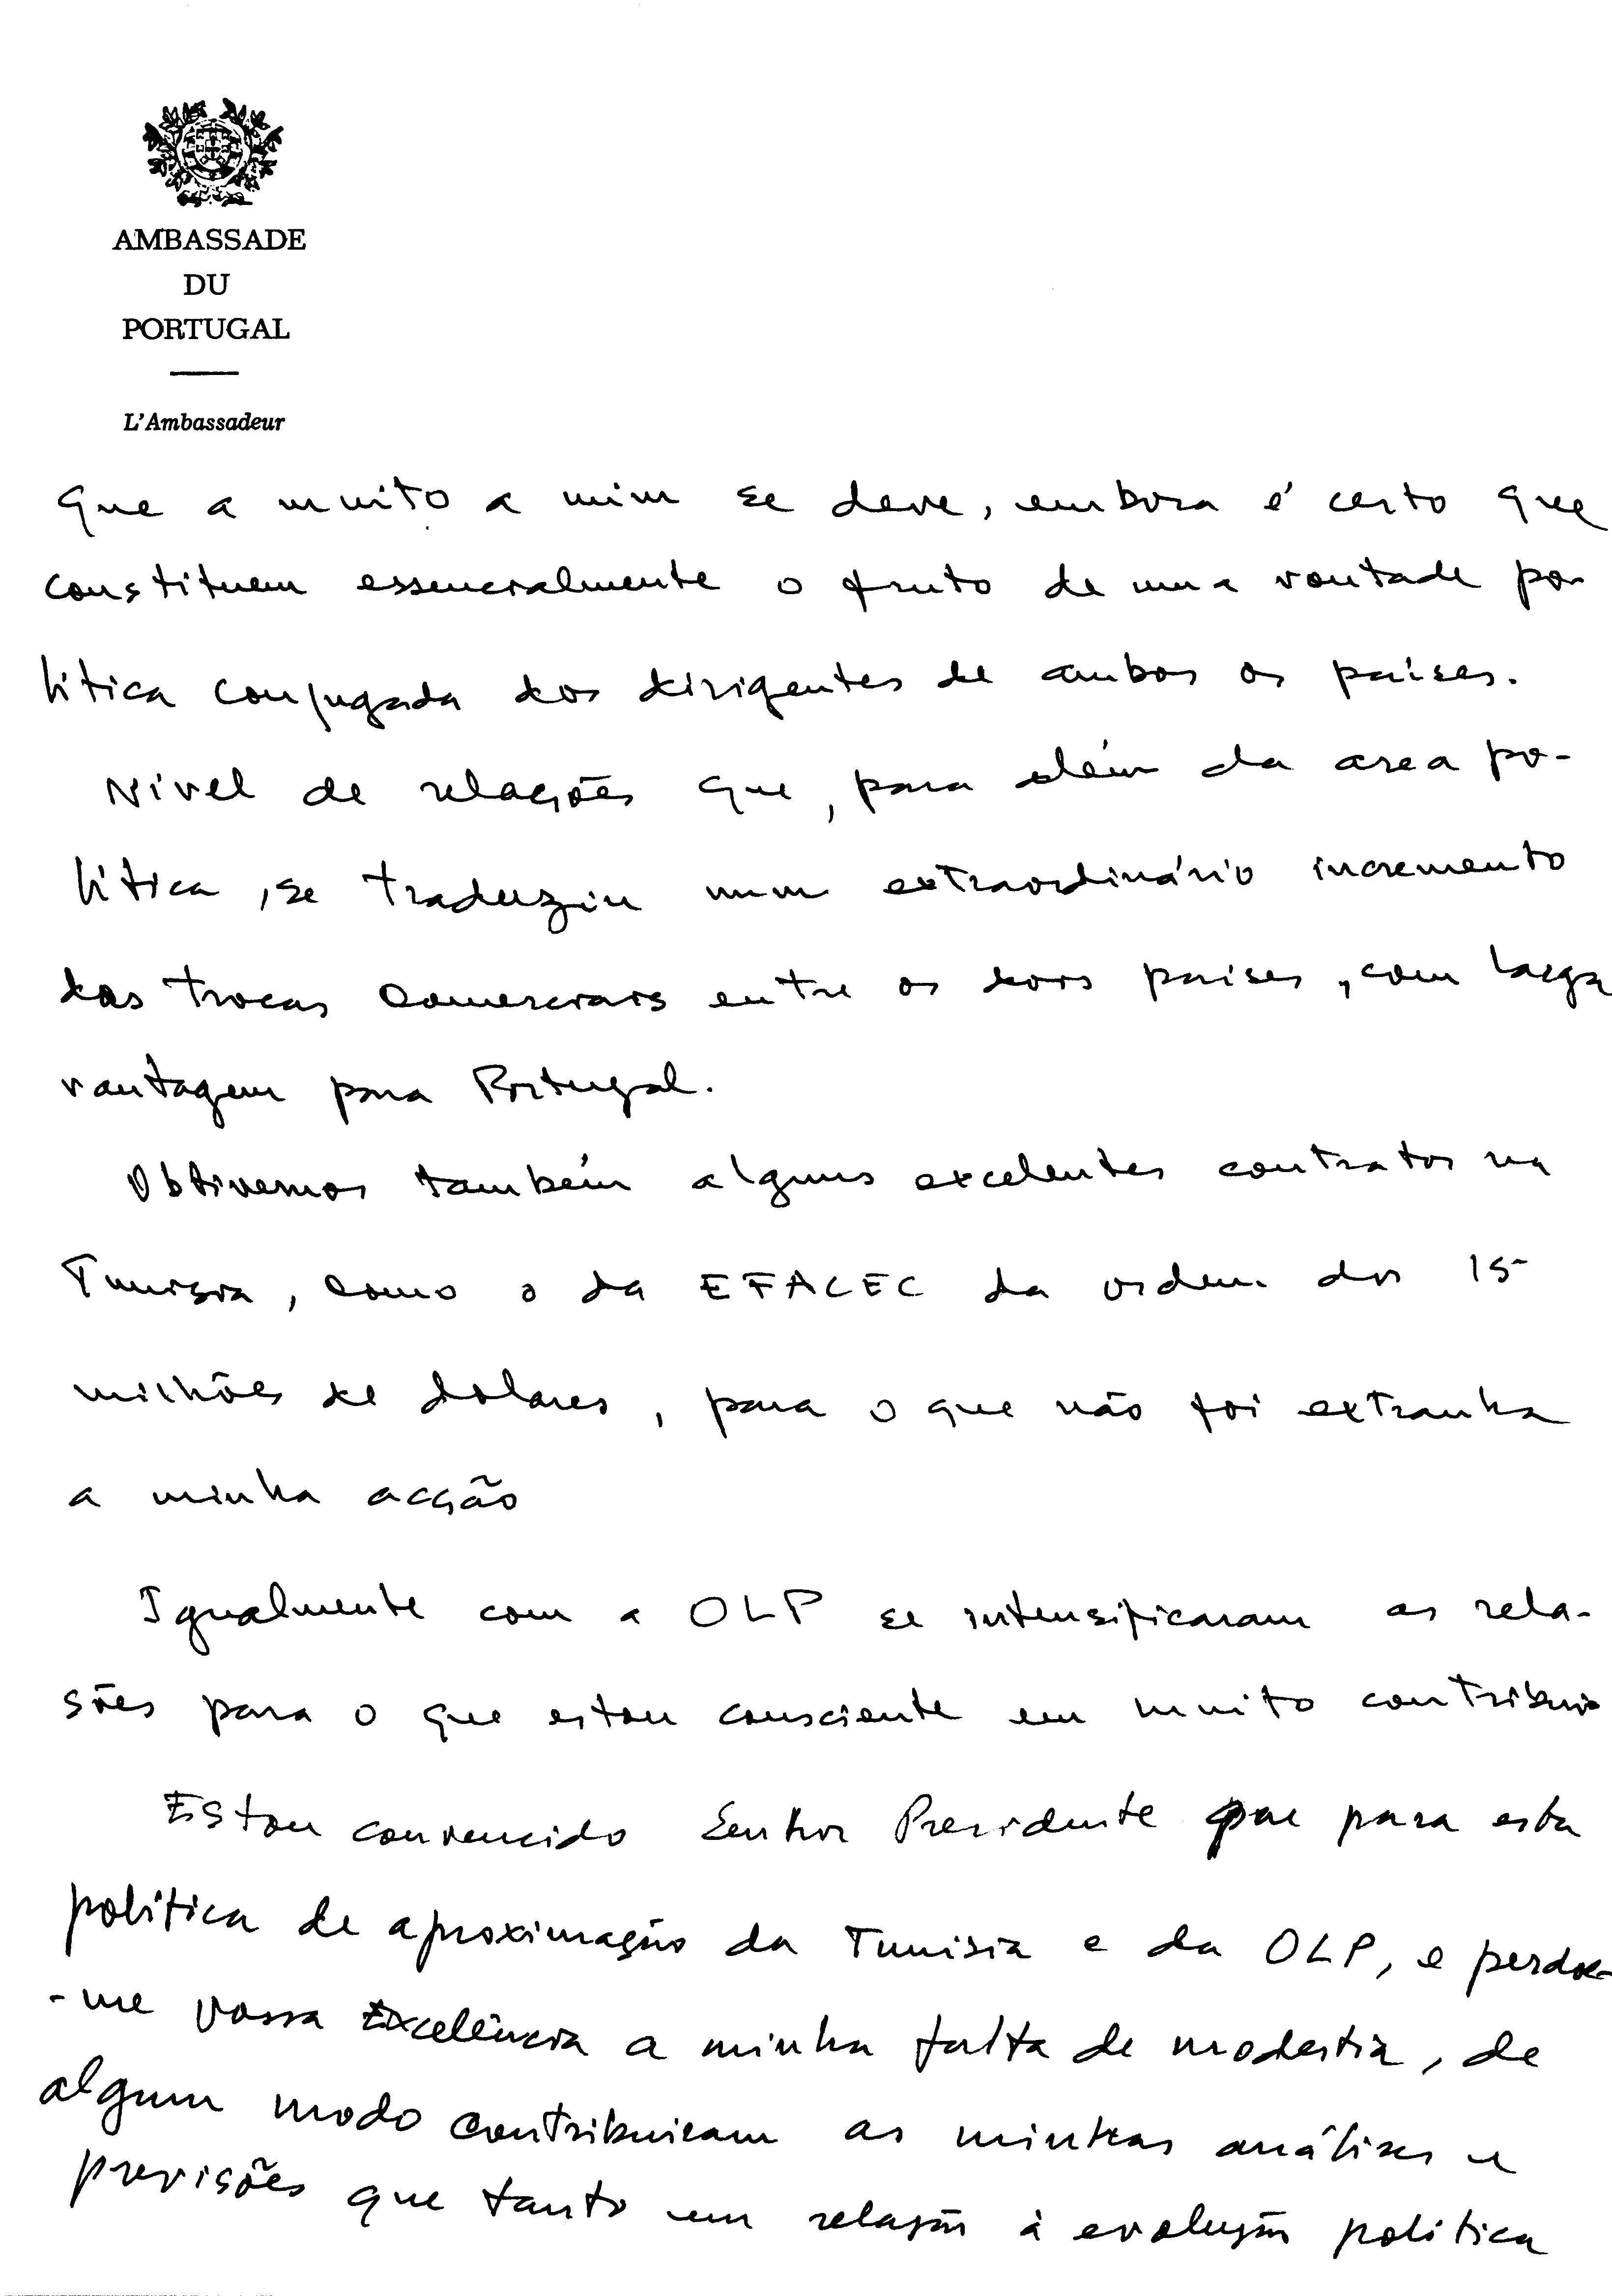 AMBASSADE
DU
PORTUGAL
L'Ambassadeur
que a muito a mim se deve, embora é certo que
constituem essencialmente o fruto de uma vontade po-
lítica conjugada dos dirigentes de ambos os países.
Nivel de relações que, para além da area po-
lítica, se traduziu num extraordinário incremento
das trocas comerciais entre os dois países, com larga
vantagem para Portugal.
Obtivemos também alguns excelentes contratos na
Tunisia, como o da EFACEC da ordem dos 15
milhões de dolares, para o que não foi extranha
a minha acção
Igualmente com a OLP se intensificaram as rela-
sões para o que estou consciente em muito contribui
Estou convencido Senhor Presidente que para esta
política de aproximação da Tunisia e da OLP, e perdoe-
-me Vossa Excelência a minha falta de modestia, de
algum modo contribuiram as minhas análises e
previsões que tanto em relação à evolução política